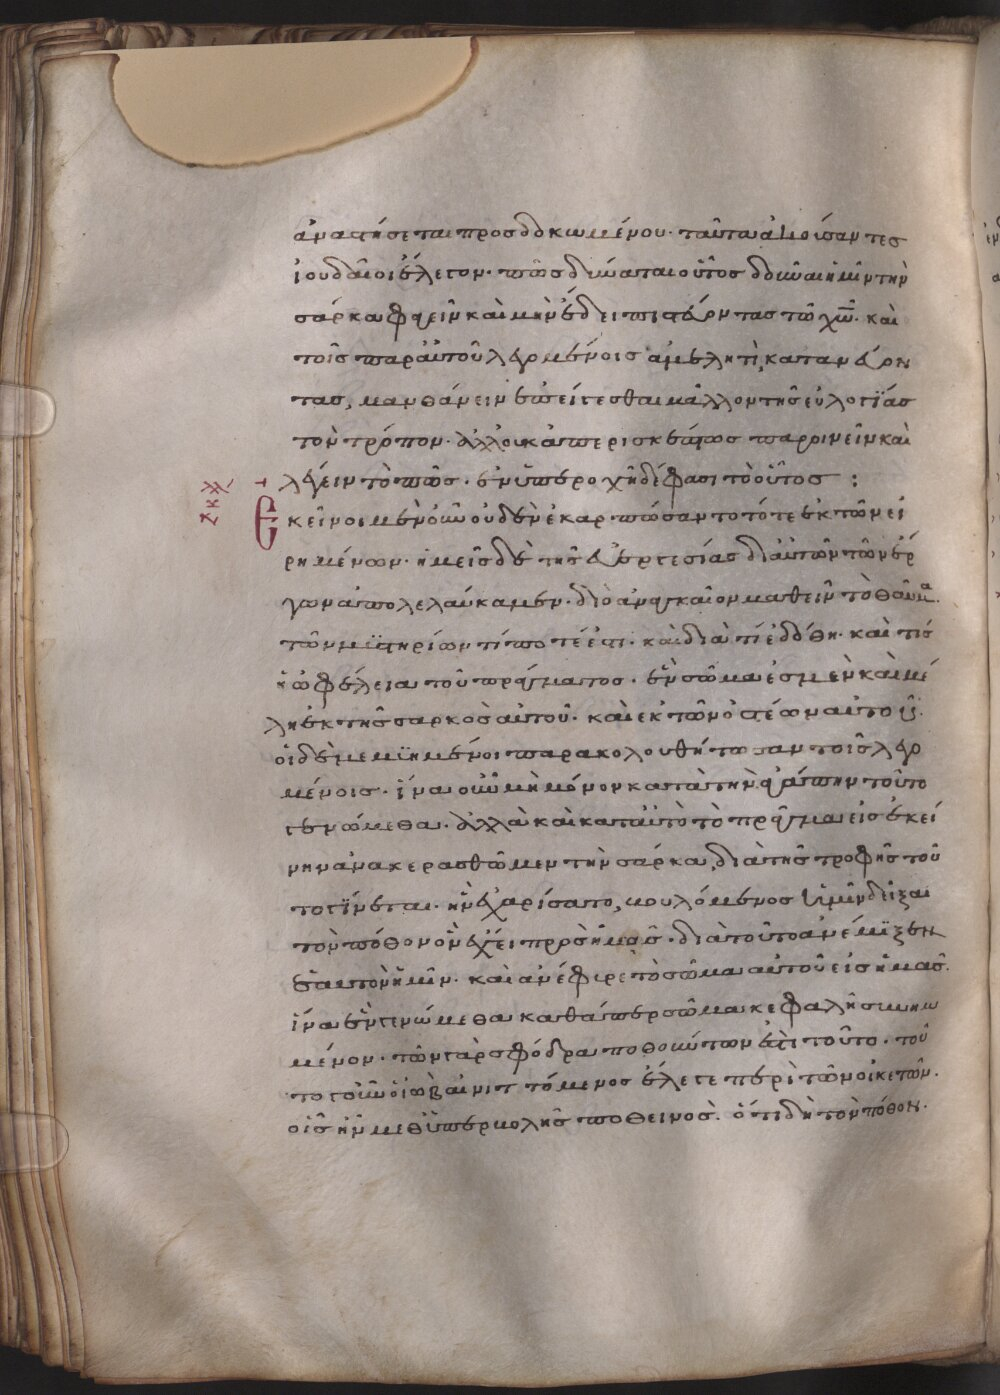 ἀναστήσεται προσδοκωμένου· ταῦτα ἀκούσαντες
ἰουδαῖοι ἔλεγον· πῶς δύναται οὗτος δοῦναι ἡμῖν τὴν
σάρκα φαγεῖν καὶ μὴν ἔδει πιστεύοντας τῶ χω̅· καὶ
τοῖς παρ' αὐτοῦ λεγομένοις ἀμελητὶ καταν
τας, μανθάνειν ἐπείγεσθαι μᾶλλον τῆς εὐλογΐας
τὸν τρόπον· ἀλλ' οὐκ ἀπερισκέπτως παροινεῖν καὶ
λέγειν τὸ πῶς· ἐν ὑπεροχῆ δέ φασι τὸ οὗτος :
Ἐκεῖνοι μὲν οὖν οὐδὲν ἐκαρπώσαντο τότε ἐκ τῶν εἰ
ρημένων· ἡμεῖς δὲ τῆς εὐεργεσίας δι' αὐτῶν τῶν ἔρ
γων ἀπολελαύκαμεν· διὸ ἀναγκαῖον μαθεῖν τὸ θαῦμα
τῶν μυστηρίων τί ποτέ ἐστι· καὶ διὰ τί ἐδόθη· καὶ τίς
ἡ ὠφέλεια τοῦ πράγματος· ἓν σῶμα ἐσμὲν καὶ μέ
λη ἐκ τῆς σαρκὸς αὐτοῦ· καὶ ἐκ τῶν ὀστέων αὐτοῦ·
οἱ δὲ μεμυημένοι παρακολουθήτωσαν τοῖς λεγο
μένοις· ἵνα οὖν μὴ μόνον κατὰ τὴν ἀγάπην τοῦτο
γενώμεθα· ἀλλὰ καὶ κατ' αὐτὸ τὸ πρᾶγμα εἰς ἐκεί
νην ἀνακερασθῶμεν τὴν σάρκα, διὰ τῆς τροφῆς τοῦ
το γΐνεται· ἣν ἐχαρίσατο, βουλόμενος ἡμῖν δεῖξαι
τὸν πόθον ὃν ἔχει πρὸς ἡμᾶς· διὰ τοῦτο ἀνέμϊξεν
ἑαυτὸν ἡμῖν· καὶ ἀνέφυρε τὸ σῶμα αὐτοῦ εἰς ἡμᾶς·
ἵνα ἓν γενώμεθα καθάπερ σῶμα κεφαλῆ συνημ
μένον· τῶν γὰρ σφόδρα ποθούντων ἐστὶ τοῦτο· τοῦ
το γοῦν ὁ ἰὼβ αἰνιττόμενος ἔλεγε περὶ τῶν οἰκετῶν·
οἷς ἦν μεθ' ὑπερβολῆς ποθεινός· ὅτι δὴ τὸν πόθον·